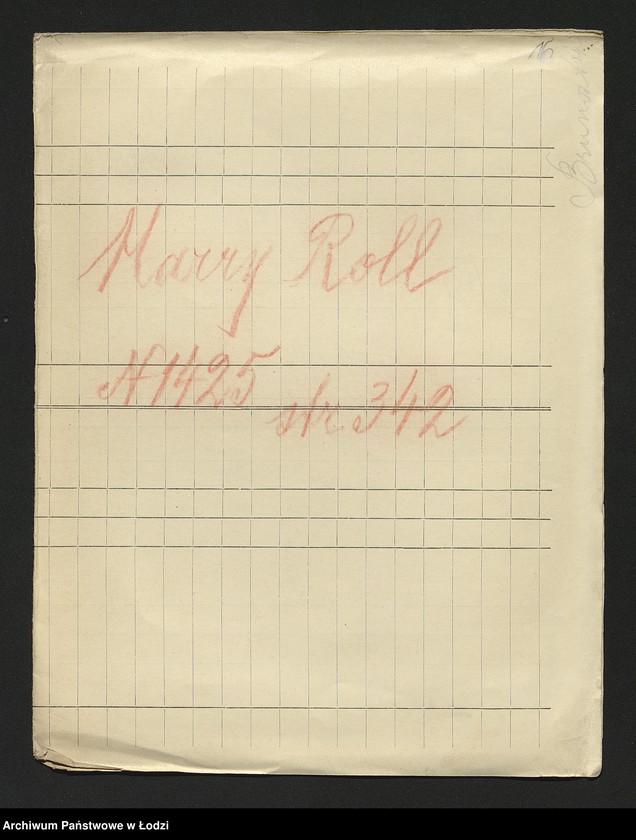 Harry Roll
N 1425 str. 342
Archiwum Państwowe w Łodzi